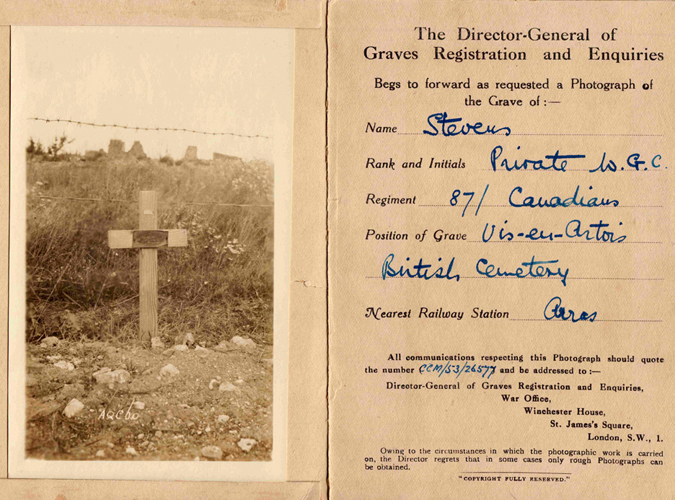 The Director-General of
Graves Registration and Enquiries
Begs to forward as requested a Photograph of
the Grave of :—
Name Stevens
Rank and Initials Private W.G.C.
Regiment 87/ Canadians
Position of Grave Vis-en-Artois
British Cemetery
Nearest Railway Station Arras
All communications respecting this Photograph should quote
the number CCM/53/26577 and be addressed to :—
Director-General of Graves Registration and Enquiries,
War Office,
Winchester House,
St. James's Square,
London, S.W., 1.
Owing to the circumstances in which the photographic work is carried
on, the Director regrets that in some cases only rough Photographs can
be obtained.
"COPYRIGHT FULLY RESERVED."